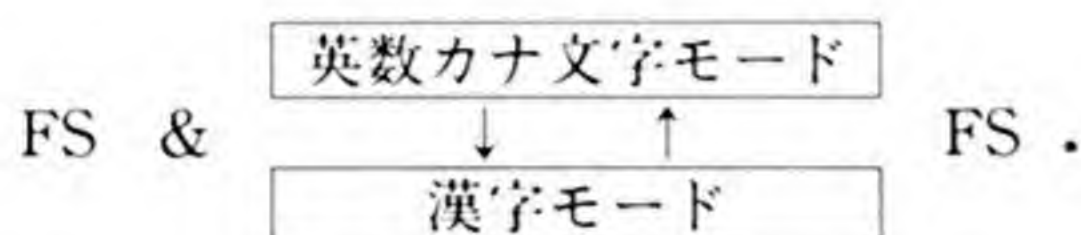 英数カナ文字モード
FS & ↓ ↑ FS .
漢字モード